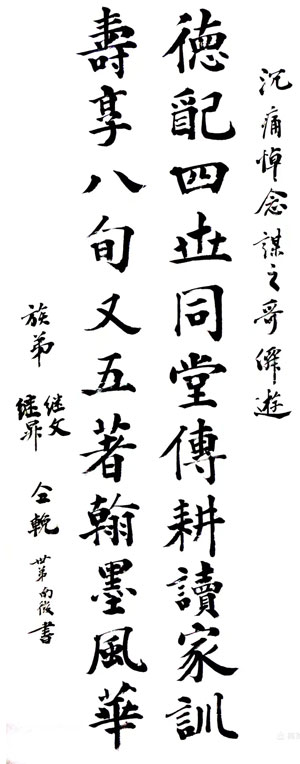 沉痛悼念謀之哥僊遊
德配四世同堂傳耕讀家訓
壽享八旬又五著翰墨風華
族弟
继文
继
仝輓
世弟
書